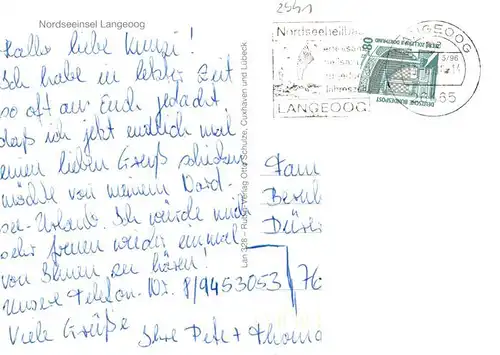 Nordseeinsel Langeoog
Hallo liebe Kunzi!
Ich habe in letzter Zeit
so oft an Euch gedacht,
daß ich jetzt endlich mal
einen lieben Gruß schicken
möchte von meinem Nord-
see-Urlaub. Ich würde mich
sehr freuen wieder einmal
von Ihnen zu hören!
Unsere Telefon. 8/9453053
Viele Grüße Ihre Pete + Thoma
Lan 328 – Verlag Otto Schulze, Cuxhaven und Lübeck
2541
Nordseeheilba
LANGEOOG
LANGEOOG
80
DEUTSCHE BUNDESPOST
Fam
Bernh
76